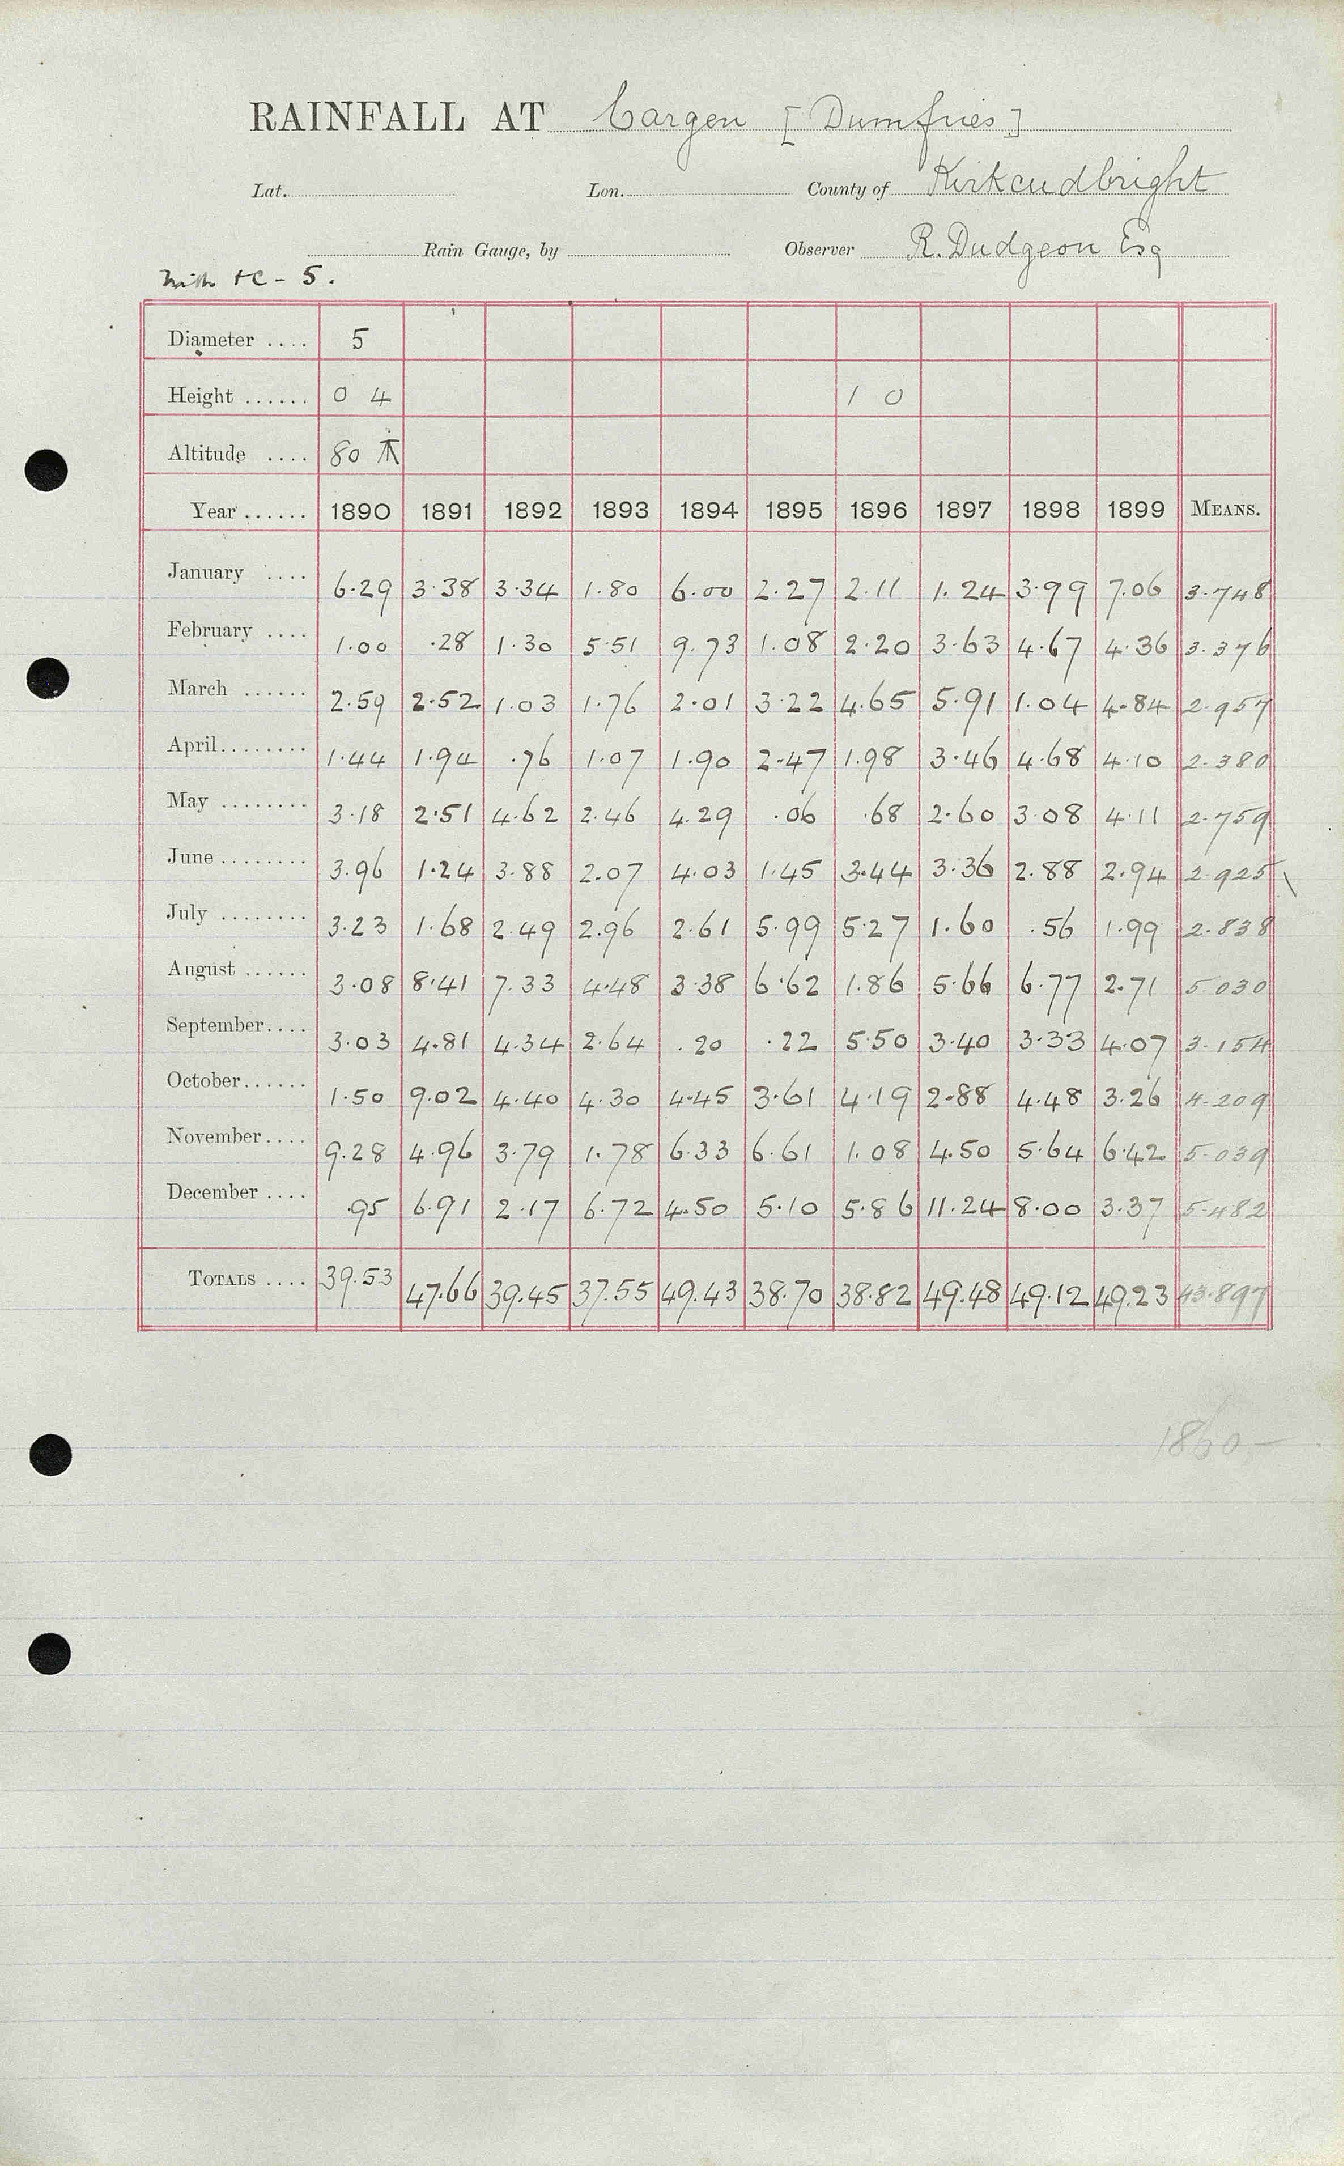 RAINFALL AT Cargen [Dumfries]
Lat. Lon. County of Kirkcudbright
Rain Gauge, by Observer R. Dudgeon Esq
- 5.
Diameter .... 5
Height ...... 0 4 1 0
Altitude .... 80
Year ...... 1890 1891 1892 1893 1894 1895 1896 1897 1898 1899 MEANS.
January .... 6.29 3.38 3.34 1.80 6.00 2.27 2.11 1.24 3.99 7.06 3.748
February .... 1.00 .28 1.30 5.51 9.73 1.08 2.20 3.63 4.67 4.36 3.376
March ...... 2.59 2.52 1.03 1.76 2.01 3.22 4.65 5.91 1.04 4.84 2.957
April........ 1.44 1.94 .76 1.07 1.90 2.47 1.98 3.46 4.68 4.10 2.380
May ........ 3.18 2.51 4.62 2.46 4.29 .06 .68 2.60 3.08 4.11 2.759
June ........ 3.96 1.24 3.88 2.07 4.03 1.45 3.44 3.36 2.88 2.94 2.925
July ........ 3.23 1.68 2.49 2.96 2.61 5.99 5.27 1.60 .56 1.99 2.838
August ...... 3.08 8.41 7.33 4.48 3.38 6.62 1.86 5.66 6.77 2.71 5.030
September.... 3.03 4.81 4.34 2.64 .20 .22 5.50 3.40 3.33 4.07 3.154
October...... 1.50 9.02 4.40 4.30 4.45 3.61 4.19 2.88 4.48 3.26 4.209
November.... 9.28 4.96 3.79 1.78 6.33 6.61 1.08 4.50 5.64 6.42 5.039
December .... .95 6.91 2.17 6.72 4.50 5.10 5.86 11.24 8.00 3.37 5.482
TOTALS .... 39.53 47.66 39.45 37.55 49.43 38.70 38.82 49.48 49.12 49.23 43.897
1860-